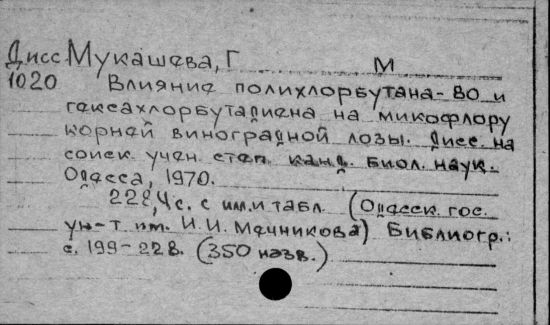 Дисс. Мукашева, Г М
1020 Влияние полихлорбутана-80 и
гексахлорбутадиена на микофлору
корней виноградной лозы. Дисс. на
соиск. учен. степ. канд. биол. наук.
Одесса, 1970.
228,4 с. с илл. и табл. (Одесск. гос.
ун-т. им. И.И. Мечникова) Библиогр.:
с. 199-228. (350 назв.)